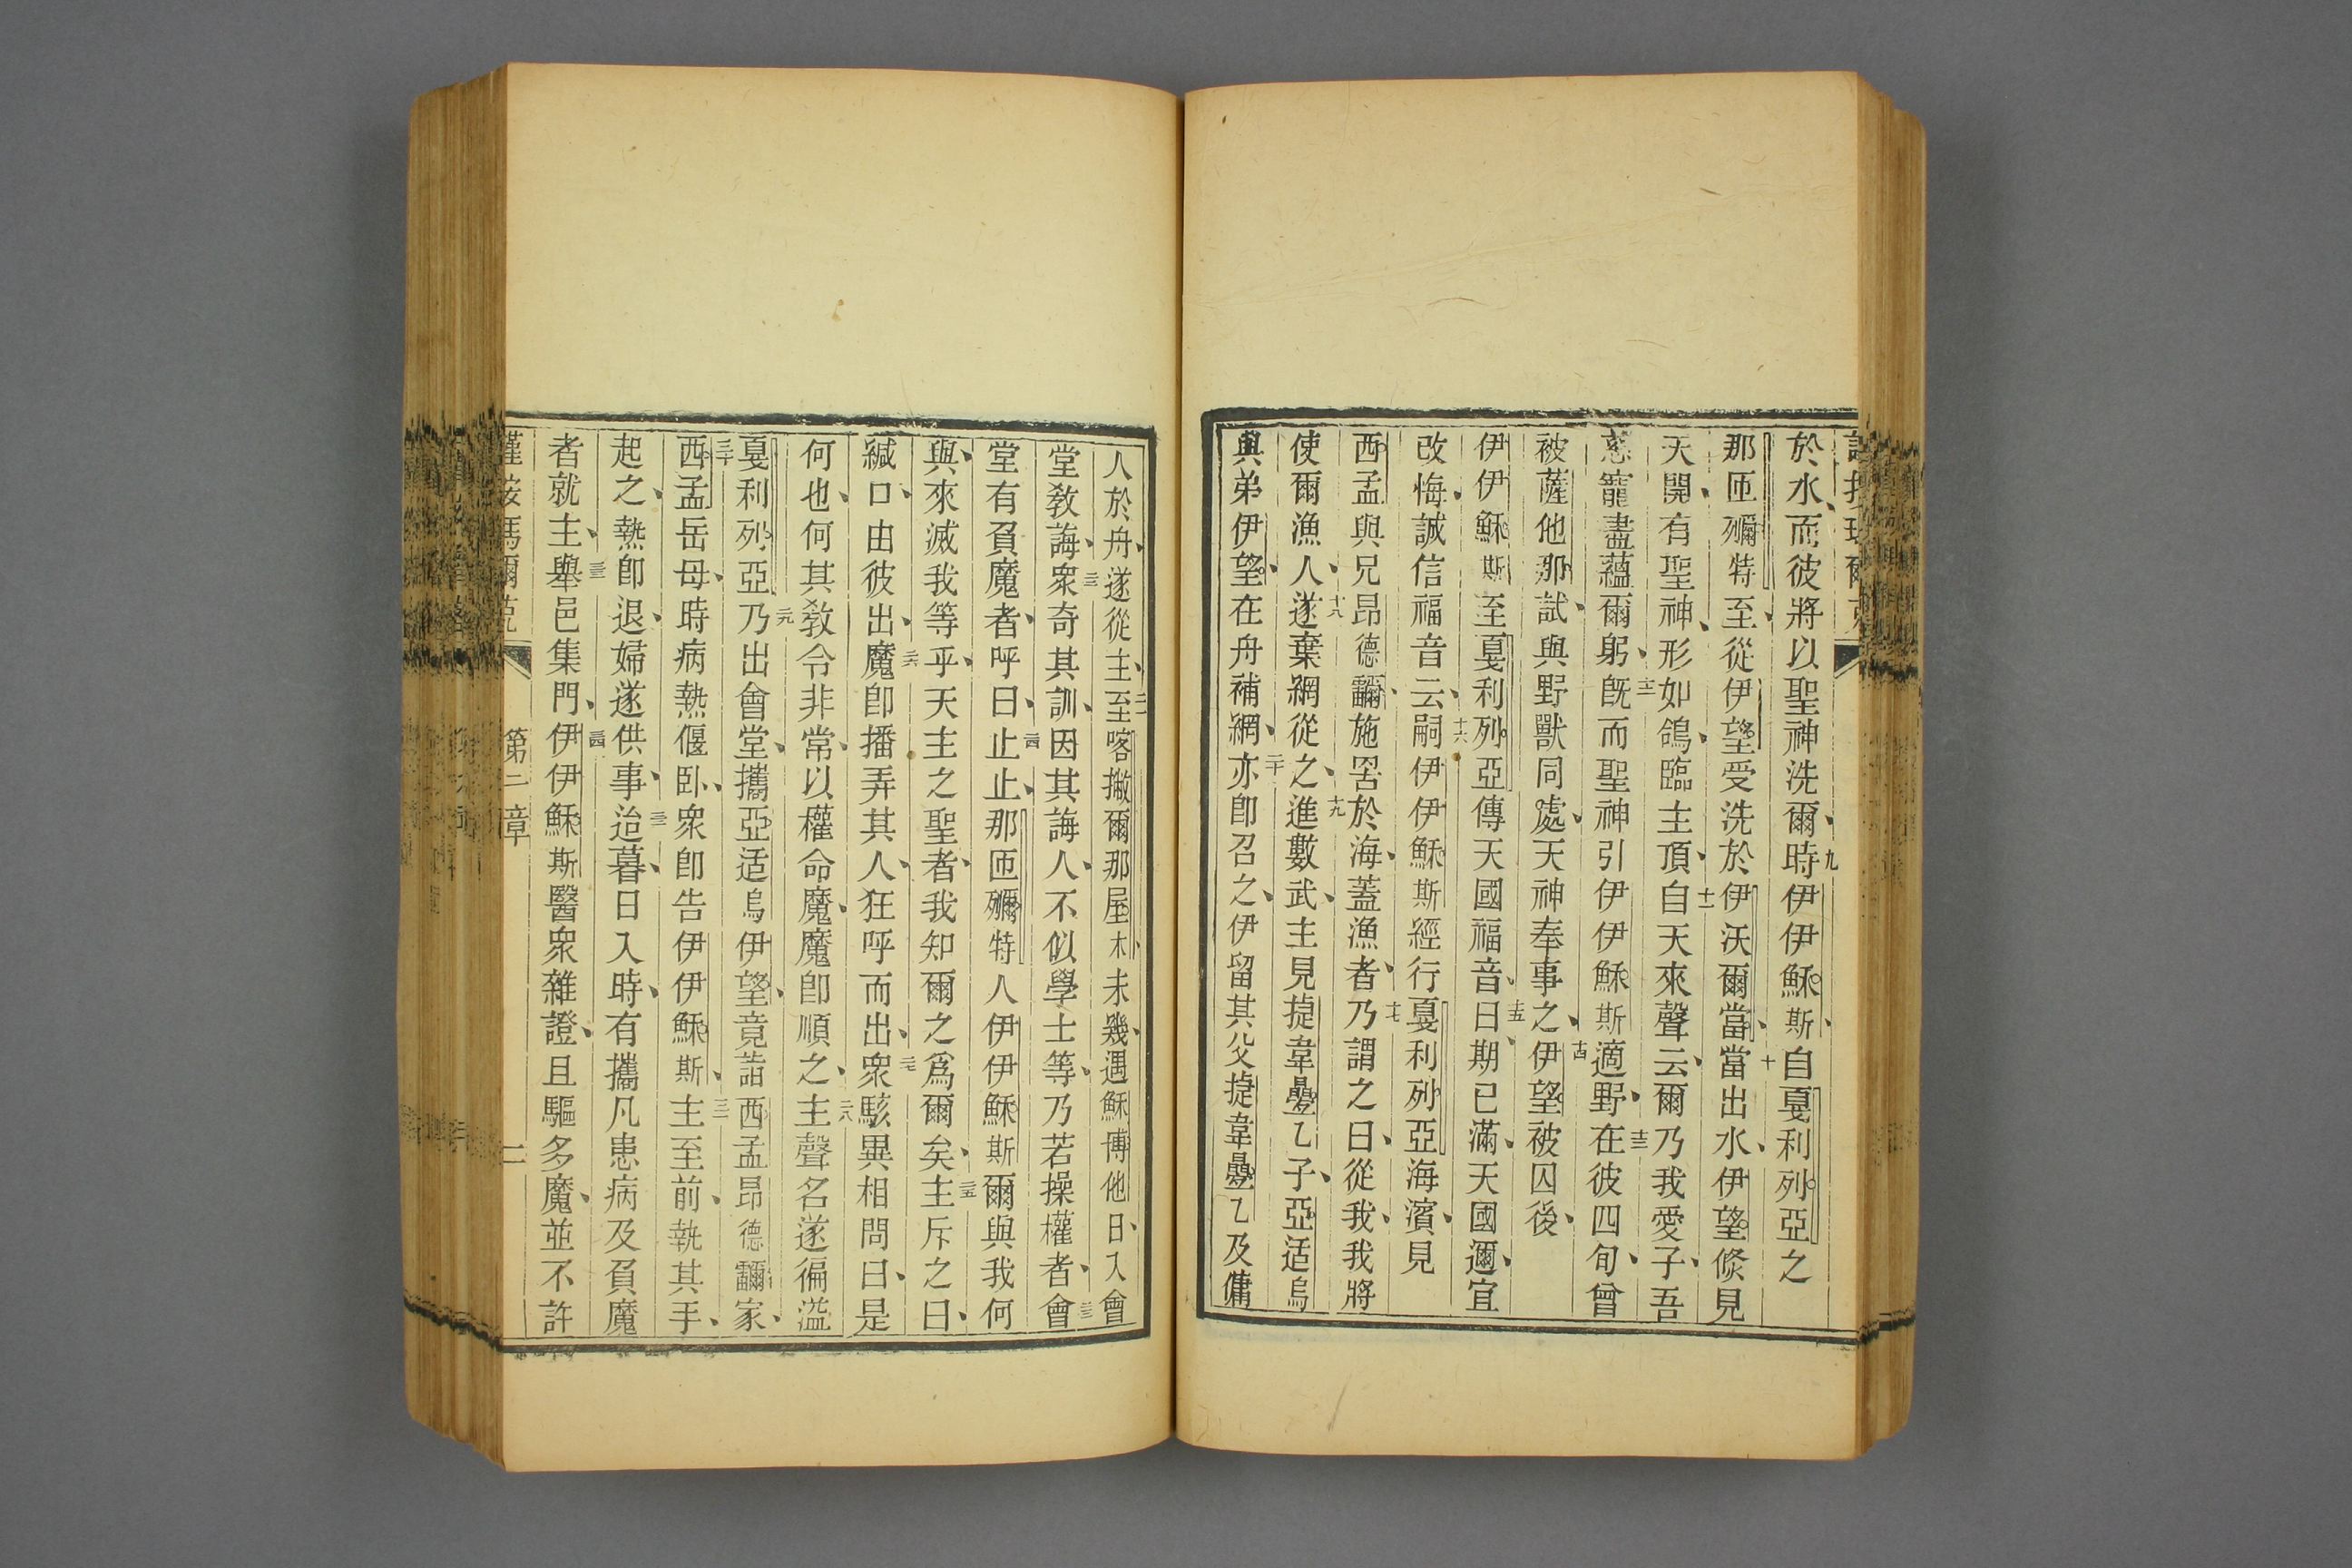 於水、而彼將以聖神洗爾、九時伊伊穌斯、自戛利列亞之
那匝彌特至、從伊望受洗於伊沃爾當、十當出水、伊望倏見
天開、有聖神、形如鴿、臨主頂、十一自天來聲云、爾乃我愛子、吾
慈寵盡蘊爾躬、十二旣而聖神引伊伊穌斯適野、十三在彼四旬、曾
被薩他那試、與野獸同處、天神奉事之、十四伊望被囚後、
伊伊穌斯至戛利列亞傳天國福音、十五曰、期已滿、天國邇、宜
改悔、誠信福音云、十六嗣伊伊穌斯經行戛利列亞海濱、見
西孟與兄昂德、施罟於海、蓋漁者、十七乃謂之曰、從我、我將
使爾漁人、十八遂棄網從之、十九進數武、主見捷韋疊乙子、亞适烏
與弟伊望、在舟補網、二十亦卽召之、伊留其父捷韋疊乙及傭
人於舟、遂從主、二一至喀撇爾那屋木、未幾、遇穌博他日、入會
堂敎誨、二二衆奇其訓、因其誨人、不似學士等、乃若操權者、二三會
堂有負魔者、呼曰、二四止止、那匝彌特人伊伊穌斯爾與我何
與、來滅我等乎、天主之聖者、我知爾之爲爾矣、二五主斥之曰、
緘口、由彼出、二六魔卽播弄其人、狂呼而出、二七衆駭異相問曰、是
何也、何其敎令非常、以權命魔、魔卽順之、二八主聲名遂徧溢
戛利列亞、二九乃出會堂、攜亞适烏伊望、竟詣西孟昂德家、
三十西孟岳母、時病熱偃臥、衆卽告伊伊穌斯、三一主至前、執其手、
起之、熱卽退、婦遂供事、三二迨暮、日入時、有攜凡患病及負魔
者就主、三三舉邑集門、三四伊伊穌斯醫衆雜證、且驅多魔、並不許
第二章
二